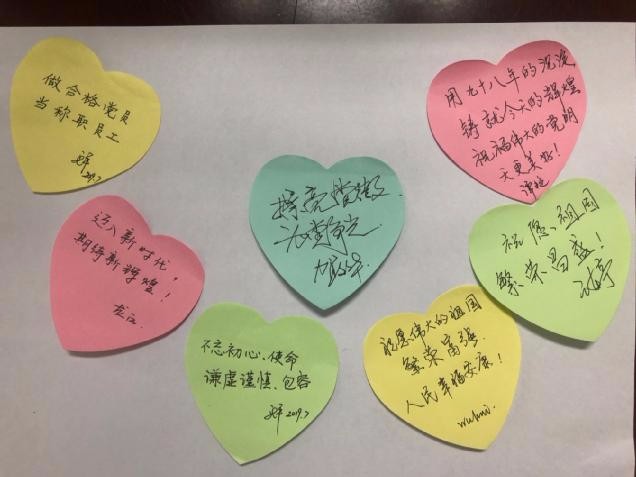 做合格党员
当称职员工
2019.7
用九十八年的沉淀
铸就今天的辉煌
祝福伟大的党明
天更美好！
擦亮党徽
为党争光
迈入新时代！
期待新辉煌！
祝愿祖国
繁荣昌盛！
不忘初心、使命
谦虚谨慎、包容
2019.7
祝愿伟大的祖国
繁荣富强
人民幸福安康！